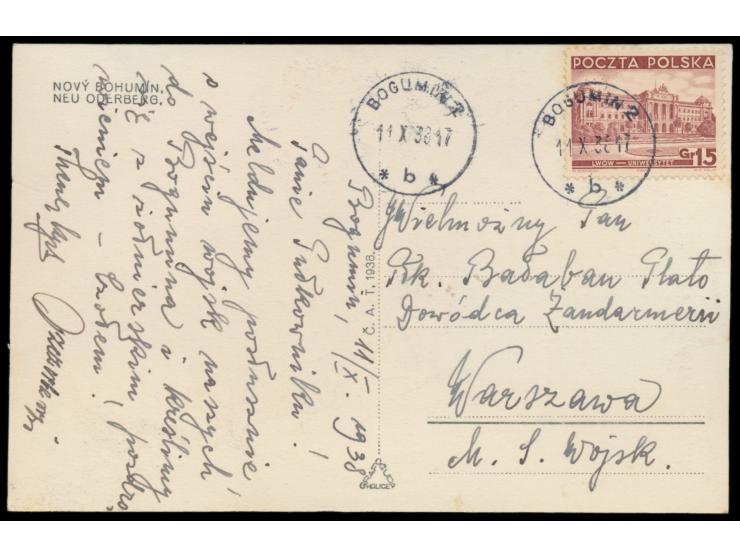 NOVÝ BOHUMÍN.
NEU ODERBERG.
Bogumin, 11/X. 1938
Panie Pułkowniku!
Meldujemy posłusznie
o wejściu wojsk naszych
do Bogumina i kreślimy
się z żołnierskim pozdro
wieniem – czołem!
Č. A. T., 1938.
HOLICE
BOGUMIN 2
11 X 38 17
* b *
BOGUMIN 2
11 X 38 17
* b *
POCZTA POLSKA
LWÓW — UNIWERSYTET
Gr 15
Wielmożny Pan
Płk. Bałaban Plato
Dowódca Żandarmerii
Warszawa
M. S. Wojsk.